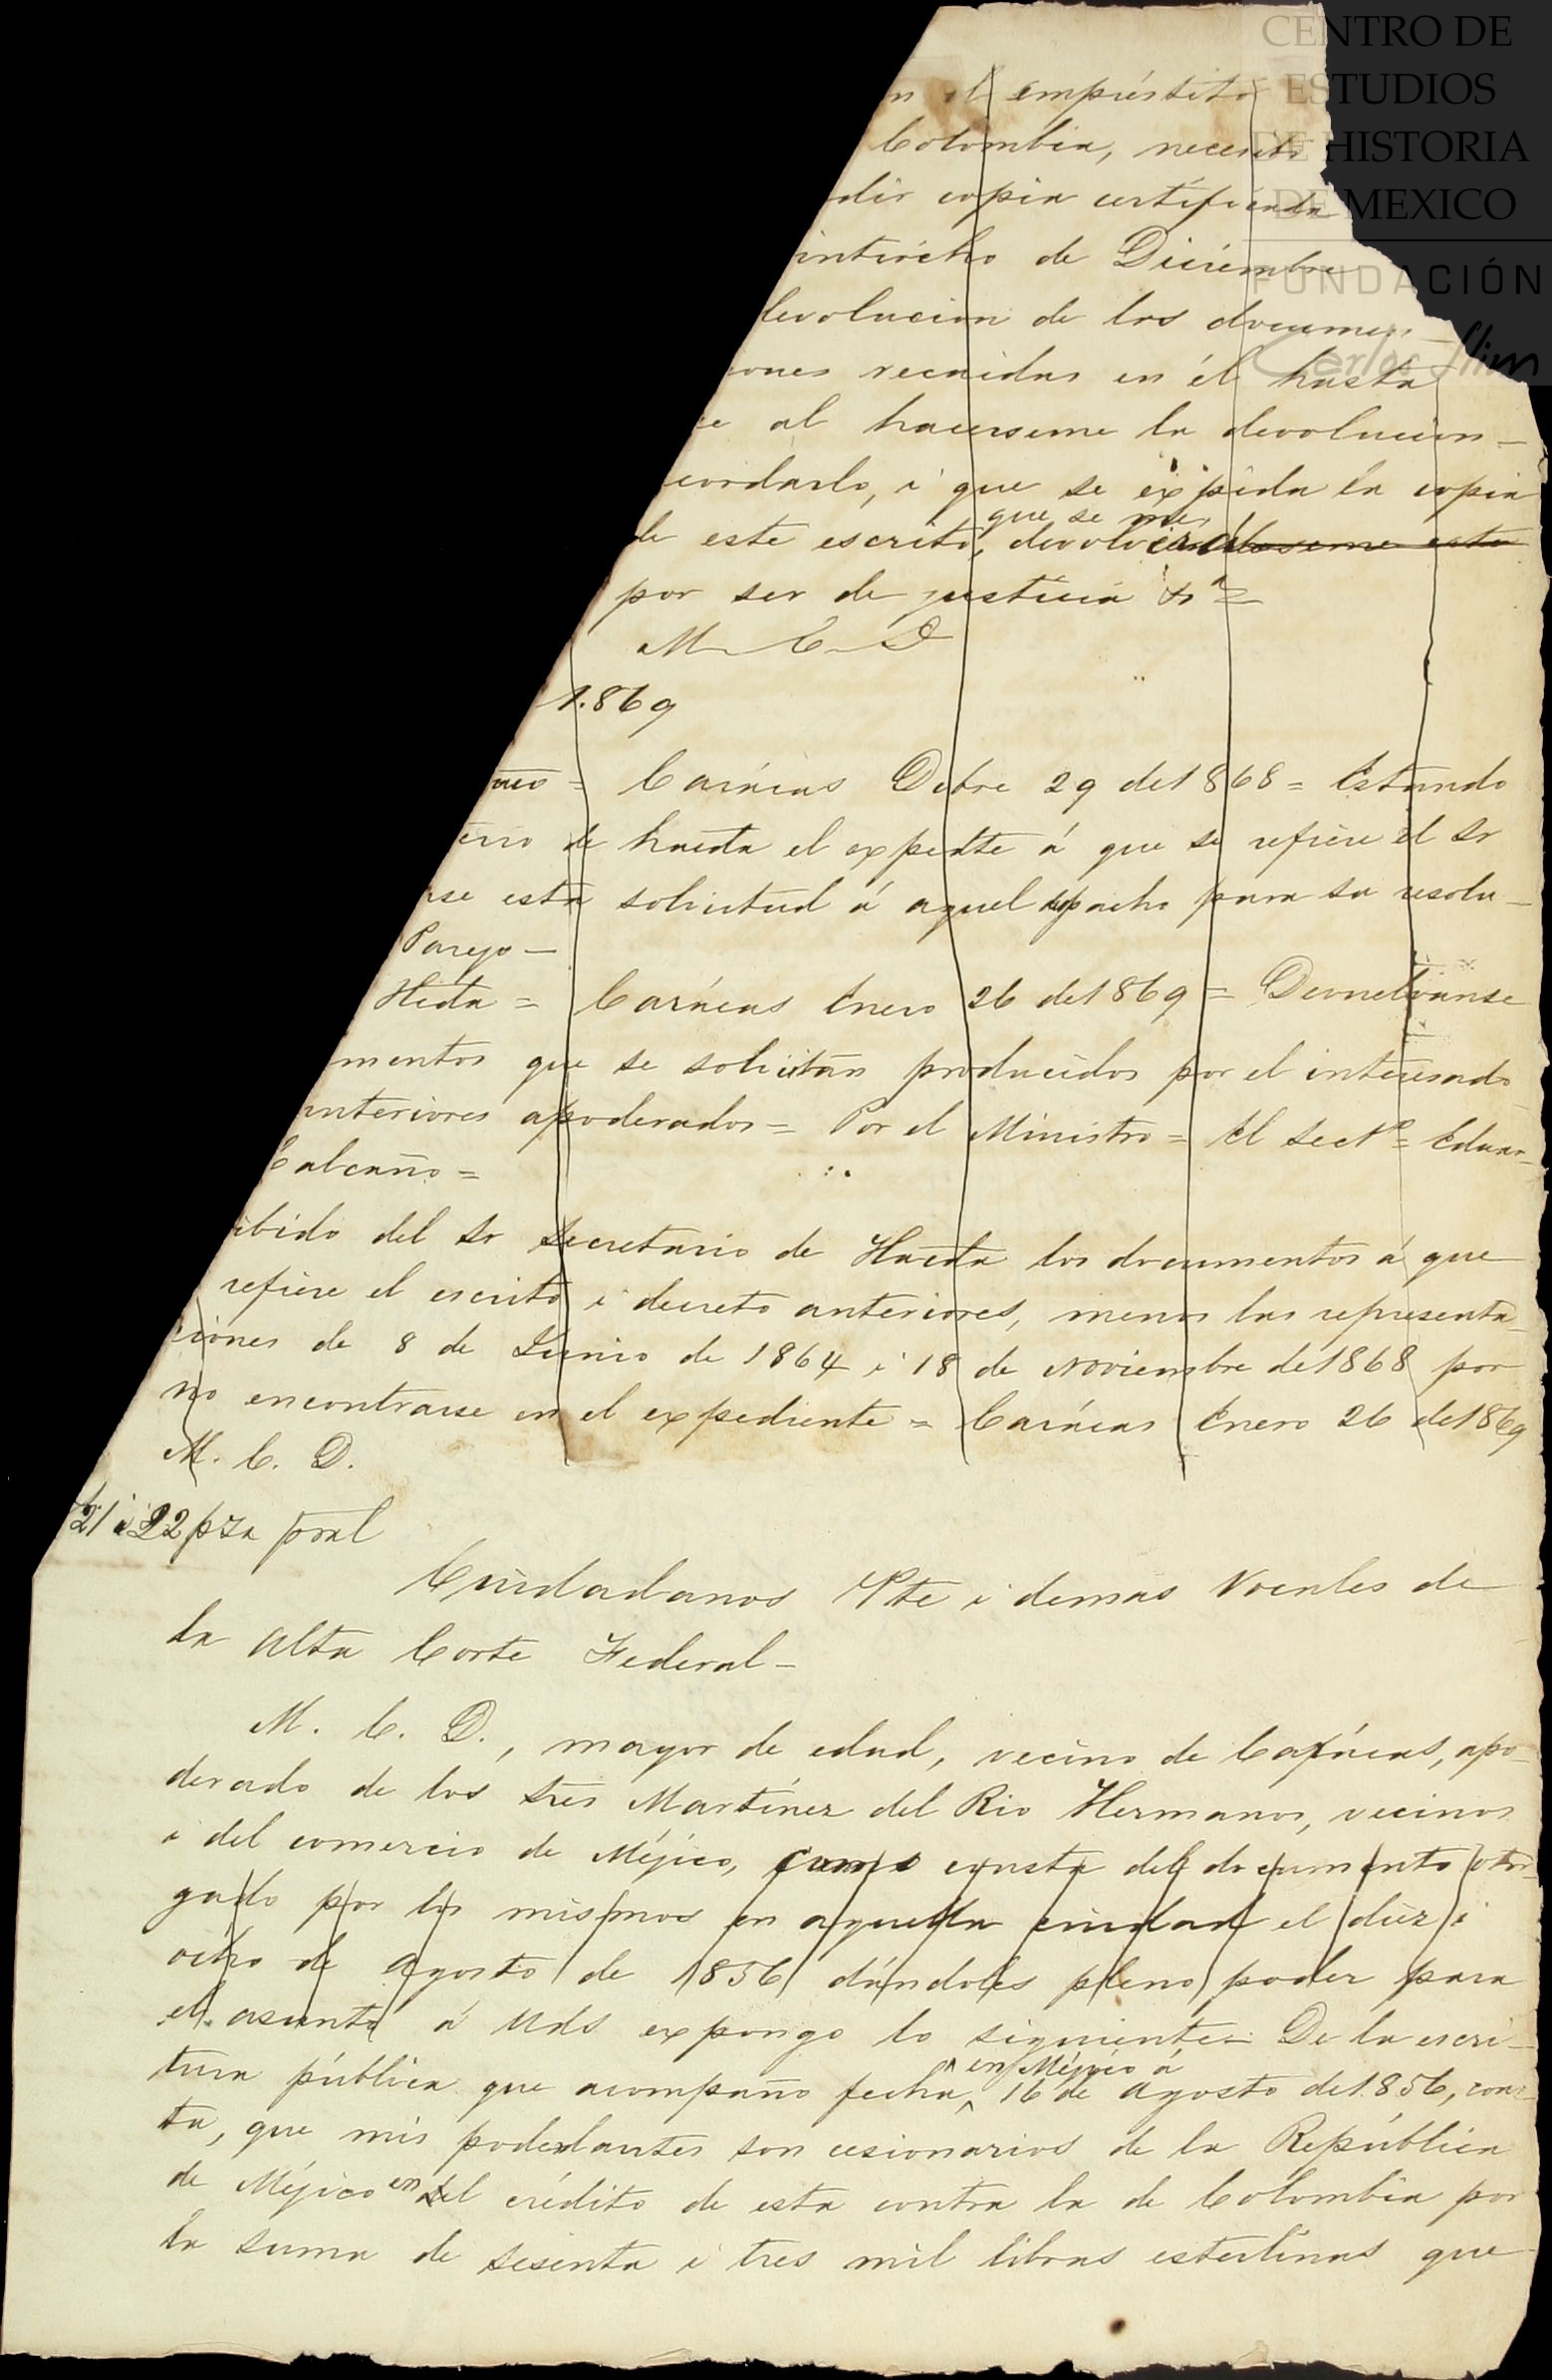 CENTRO DE
ESTUDIOS
DE HISTORIA
DE MEXICO
FUNDACIÓN
Carlos Slim
n el empréstito
Colombia, necesito
dir copia certificada
intiocho de Diciembre
devolucion de los documen
iones recaidas en él hasta
e al hacerseme la devolucion
cordarlo, i que se expida la copia
de este escrito, que se me devolverá
por ser de justicia &a =
M C D
1.869
Carácas Dbre 29 de 1868 = Estando
erio de hacda el expedte á que se refiere el Sr
se esta solicitud á aquel despacho para su resolu-
Parejo —
Hcda = Carácas Enero 26 de 1869 = Devuelvanse
mentos que se solicitan producidos por el interesado
anteriores apoderados = Por el Ministro = El Sect° = Eduar-
Calcaño =
ibido del Sr Secretario de Hacda los documentos á que
refiere el escrito i decreto anteriores, menos las representa-
ciones de 8 de Junio de 1864 i 18 de Noviembre de 1868 por
no encontrarse en el expediente = Carácas Enero 26 de 1869
M. C. D.
21 i 22 pza pral
Ciudadanos Pte i demas Vocales de
la Alta Corte Federal -
M. C. D., mayor de edad, vecino de Carácas, apo-
derado de los Sres Martínez del Rio Hermanos, vecinos
i del comercio de Méjico, como consta del documento otor-
gado por los mismos en aquella ciudad el diez i
ocho de Agosto de 1856 dándoles pleno poder para
el asunto á Uds expongo lo siguiente - De la escri-
tura pública que acompaño fecha en Méjico á 16 de Agosto de 1.856, cons-
ta, que mis poderdantes son cesionarios de la República
de Méjico en el crédito de esta contra la de Colombia por
la suma de sesenta i tres mil libras esterlinas que